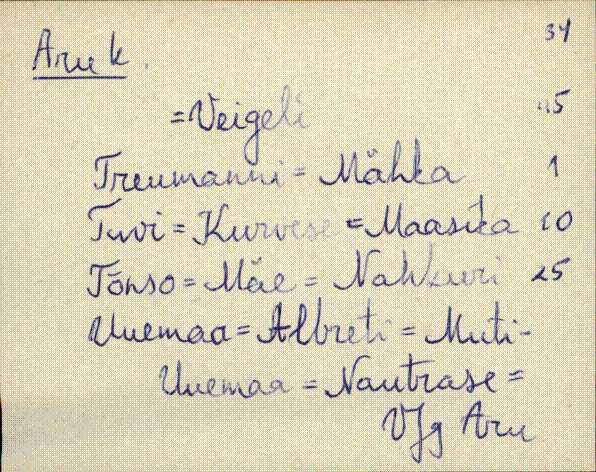 34
Aru k.
=Veigeli "5
Treumanni = Mähka 1
Tuvi = Kurvese = Maasika 10
Tõnso = Mäe = Nahkuri 25
Uuemaa = Albreti = Muti-
Uuemaa = Nautrase =
Vjg Aru